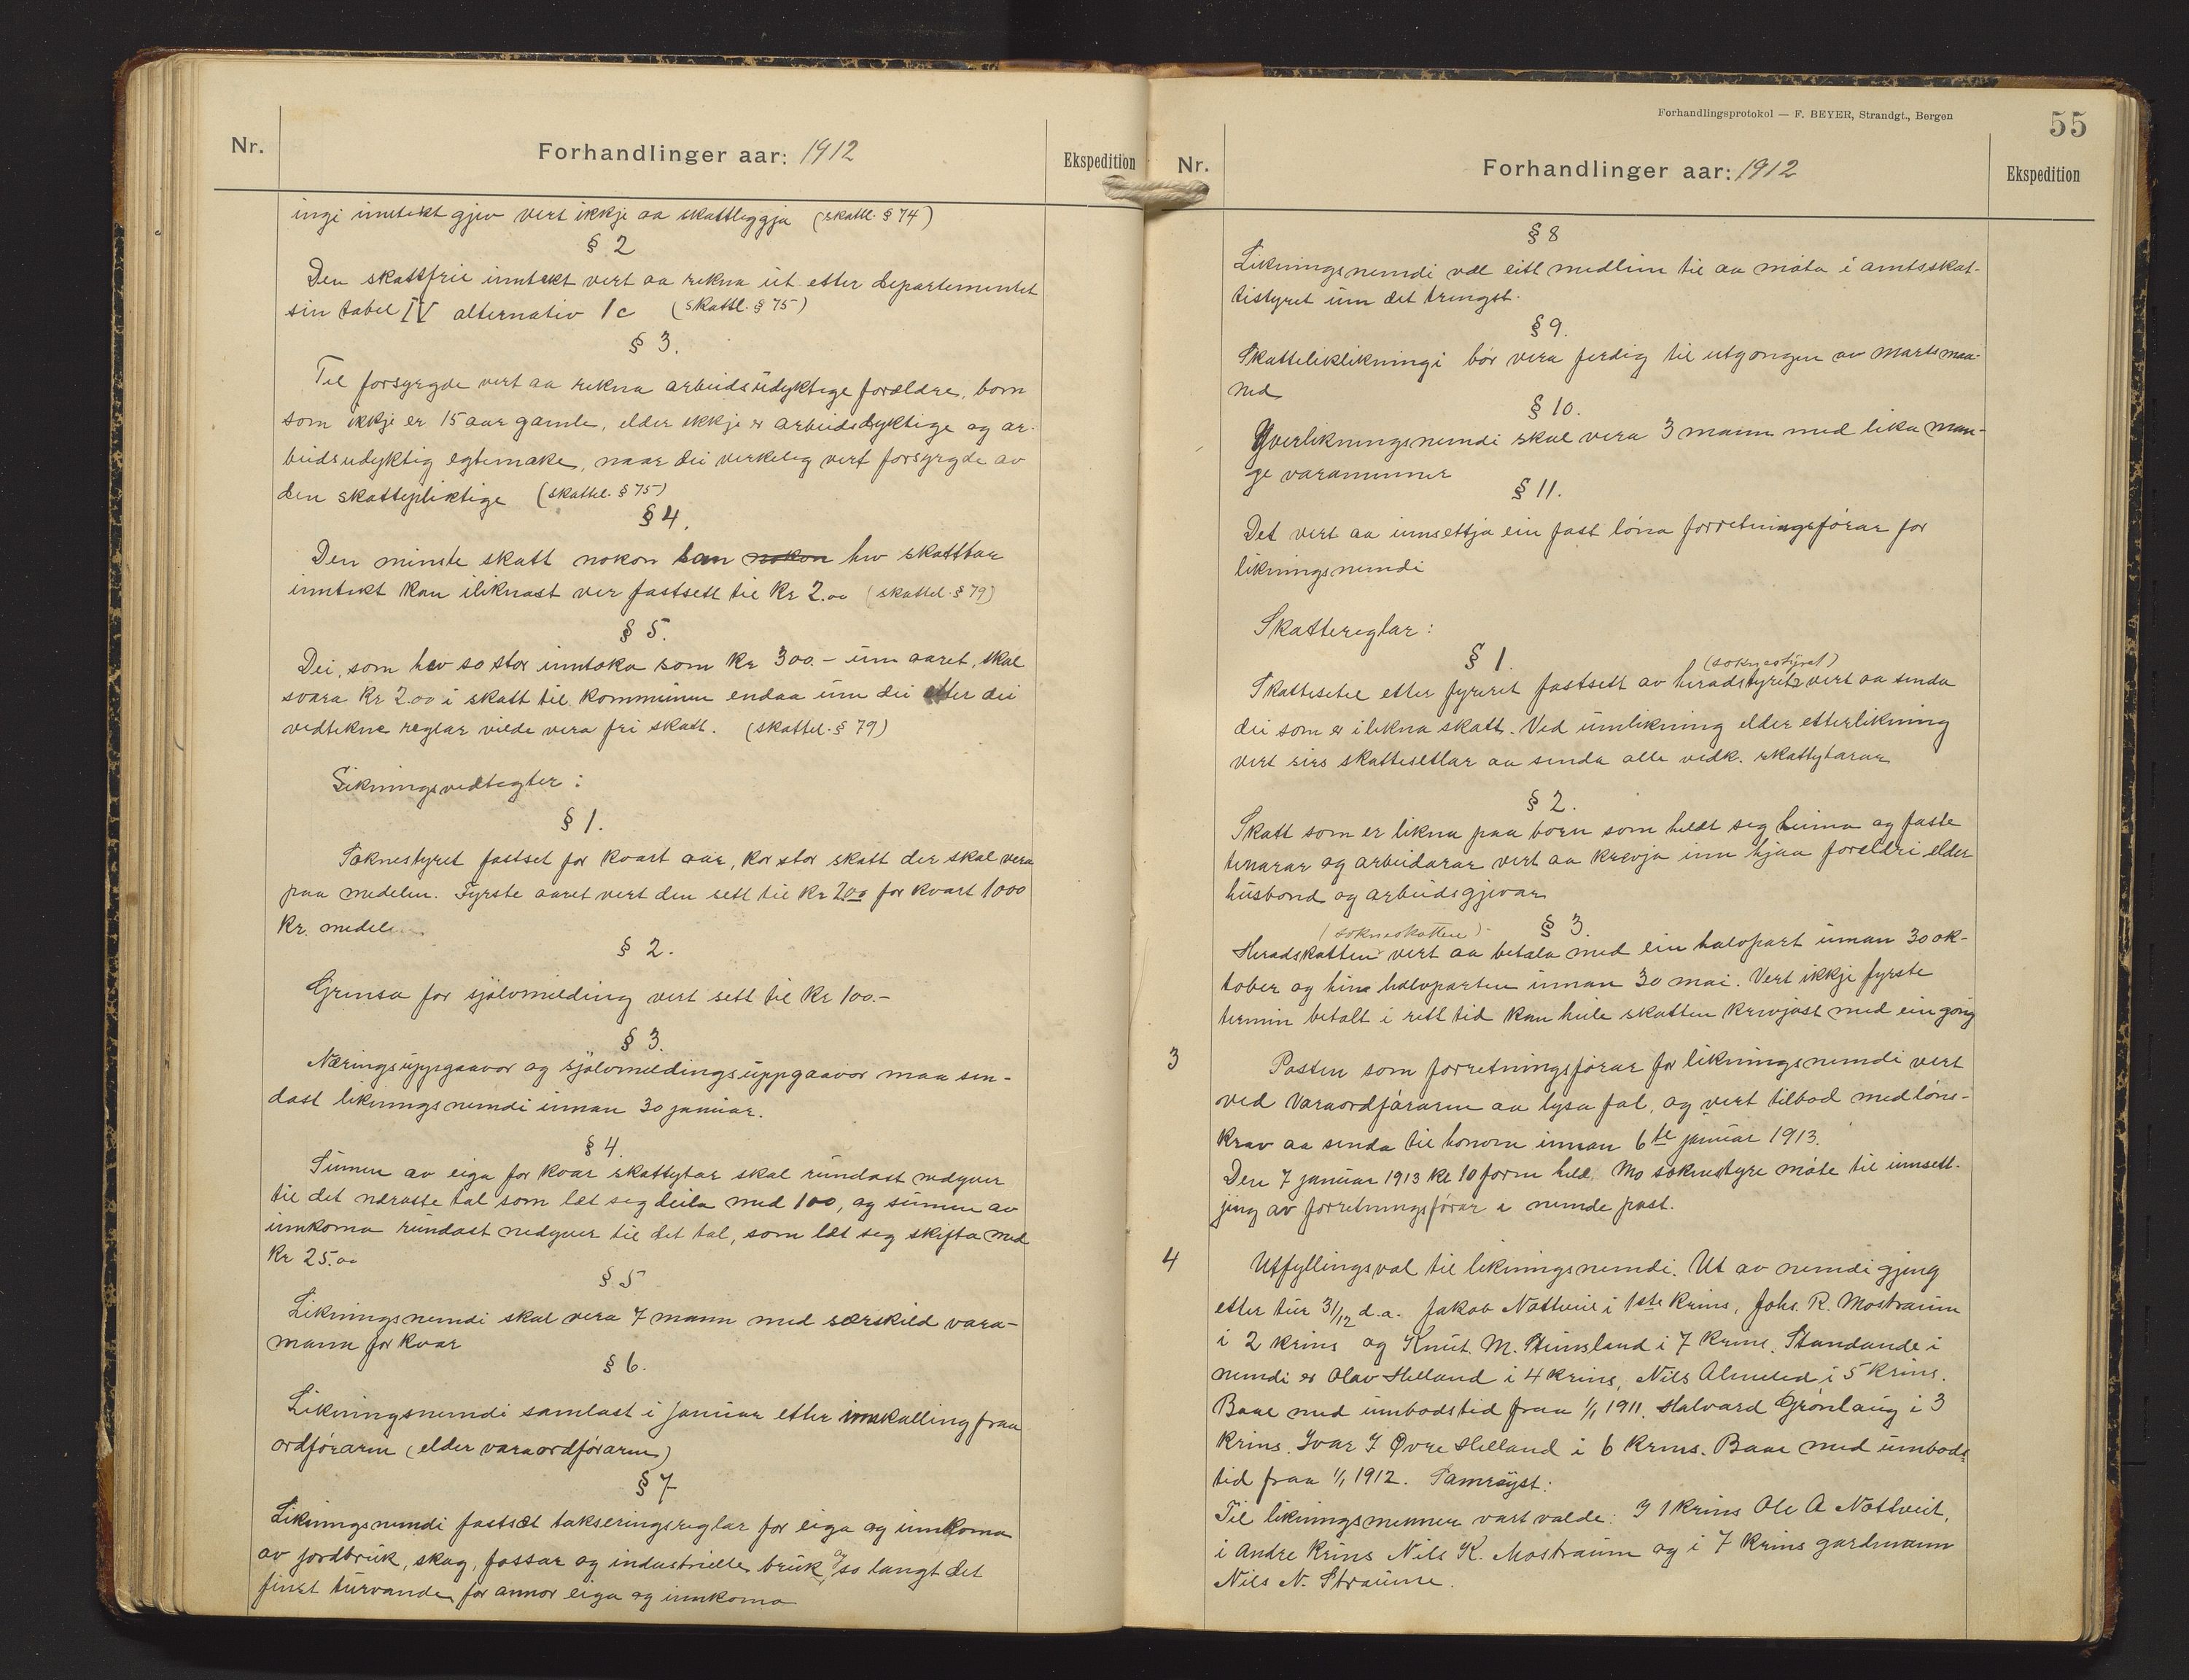 Nr.
Forhandlinger aar: 1912
Ekspedition
ingi inntekt gjev vert ikkje aa skattleggja (skattl. § 74)
§ 2
Den skattfrie inntekt vert aa rekna ut etter departementet
sin tabel IV alternativ 1c (skattl. § 75)
§ 3.
Til forsyrgde vert aa rekna arbeidsudyktige foreldre, born
som ikkje er 15 aar gamle, elder ikkje er arbeidsdyktige og ar-
beidsudyktig egtemake, naar dei verkeleg vert forsyrgde av
den skattepliktige (skattel. § 75)
§ 4.
Den minste skatt nokon som nokon hev skattbar
inntekt kan iliknast ver fastsett til kr 2.00 (skattel. § 79)
§ 5.
Dei, som hev so stor inntoka som kr 300.- um aaret, skal
svara kr 2.00 i skatt til kommunen endaa um dei etter dei
vedtekne reglar vilde vera fri skatt. (skattel. § 79)
Likningsvedtegter:
§ 1.
Soknestyret fastset for kvart aar, kor stor skatt der skal vera
paa medelen. Fyrste aaret vert den sett til kr 2.00 for kvart 1000
kr. medel
§ 2.
Grensa for sjølvmelding vert sett til kr 100.-
§ 3.
Næringsuppgaavor og sjølvmeldingsuppgaavor maa sen-
dast likningsnemdi innan 30 januar.
§ 4.
Sumen av eiga for kvar skattytar skal rundast nedyver
til det næraste tal som læt seg deila med 100, og sumen av
innkoma rundast nedyver til det tal, som læt seg skifta med
kr 25.00
§ 5
Likningsnemdi skal vera 7 mann med særskild vara-
mann for kvar
§ 6.
Likningsnemdi samlast i januar etter innkalling fraa
ordførarm (elder varaordførarm)
§ 7
Likningsnemdi fastsæt takseringsreglar for eiga og innkoma
av jordbruk, skog, fossar og industrielle bruk, so langt det
finst turvande for annor eiga og innkoma
Forhandlingsprotokol — F. BEYER, Strandgt., Bergen
55
Nr.
Forhandlinger aar: 1912
Ekspedition
§ 8
Likningsnemdi vel eitt medlem til aa møta i amtsskat-
tistyret um det trengst.
§ 9.
Skatteliklikningi bør vera ferdig til utgongen av marts maa-
ned
§ 10.
Yverlikningsnemdi skal vera 3 mann med lika man-
ge varamenner
§ 11.
Det vert aa innsettja ein fast løna forretningsførar for
likningsnemdi
Skattereglar:
§ 1.
(soknestyret)
Skattesetel etter fyreret fastsett av heradstyret vert aa senda
dei som er ilikna skatt. Ved umlikning elder etterlikning
vert sers skattesetlar aa senda alle vedk. skattytarar
§ 2.
Skatt som er likna paa born som heldt seg heima og faste
tenarar og arbeidarar vert aa krevja inn hjaa foreldri elder
husbond og arbeidsgjevar
§ 3.
(sokneskatten)
Heradskatten vert aa betala med ein halvpart innan 30 ok-
tober og hine halvparten innan 30 mai. Vert ikkje fyrste
termin betalt i rett tid kan heile skatten krevjast med ein gong
3
Posten som forretningsførar for likningsnemdi vert
ved varaordførarm aa lysa fal, og vert tilbod med løns-
krav aa senda til honom innan 6te januar 1913.
Den 7 januar 1913 kl 10 form held Mo soknestyre møte til innsett-
jing av forretningsførar i nemde post.
4
Utfyllingsval til likningsnemdi. Ut av nemdi gjeng
etter tur 31/12 d.a. Jakob Nottveit i 1ste krins, Johs. R. Mostraum
i 2 krins og Knut M. Steinsland i 7 krins. Standande i
nemdi er Olav Helland i 4 krins, Nils Almelid i 5 krins.
Baae med umbodstid fraa 1/1 1911. Halvard Grønlaug i 3
krins. Ivar J Øvre Helland i 6 krins. Baae med umbods
tid fraa 1/1 1912. Samrøyst:
Til likningsmenner vart valde: I 1 krins Ole A Nottveit,
i andre krins Nils K. Mostraum og i 7 krins gardmann
Nils N. Straume.